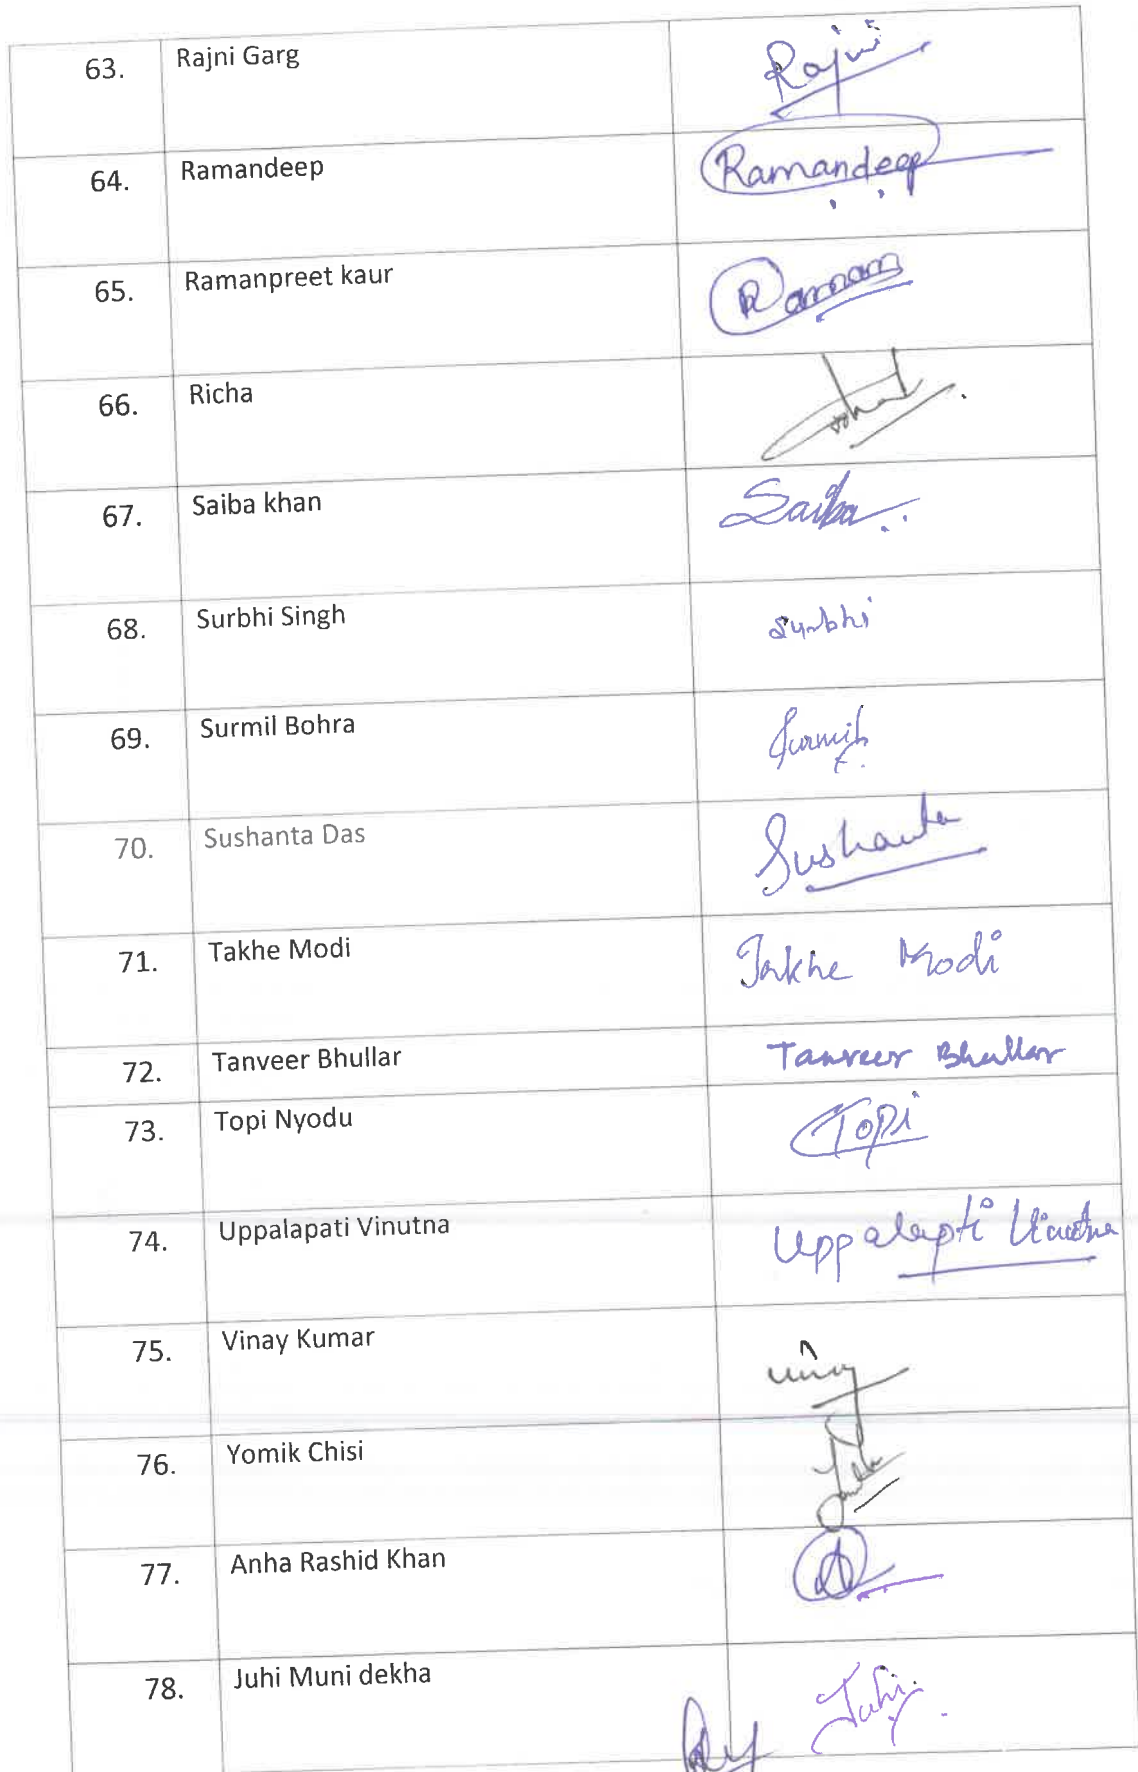 63. Rajni Garg Rajni
64. Ramandeep Ramandeep
65. Ramanpreet kaur Raman
66. Richa
67. Saiba khan Saiba
68. Surbhi Singh Surbhi
69. Surmil Bohra Surmil
70. Sushanta Das Sushanta
71. Takhe Modi Takhe Modi
72. Tanveer Bhullar Tanveer Bhullar
73. Topi Nyodu Topi
74. Uppalapati Vinutna Uppalapti Vinutna
75. Vinay Kumar Vinay
76. Yomik Chisi
77. Anha Rashid Khan
78. Juhi Muni dekha Juhi